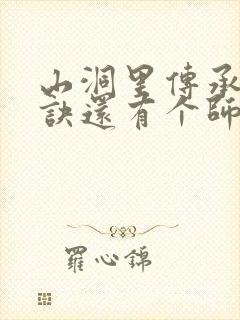 山洞里傳承
訣還有个師
羅心錦